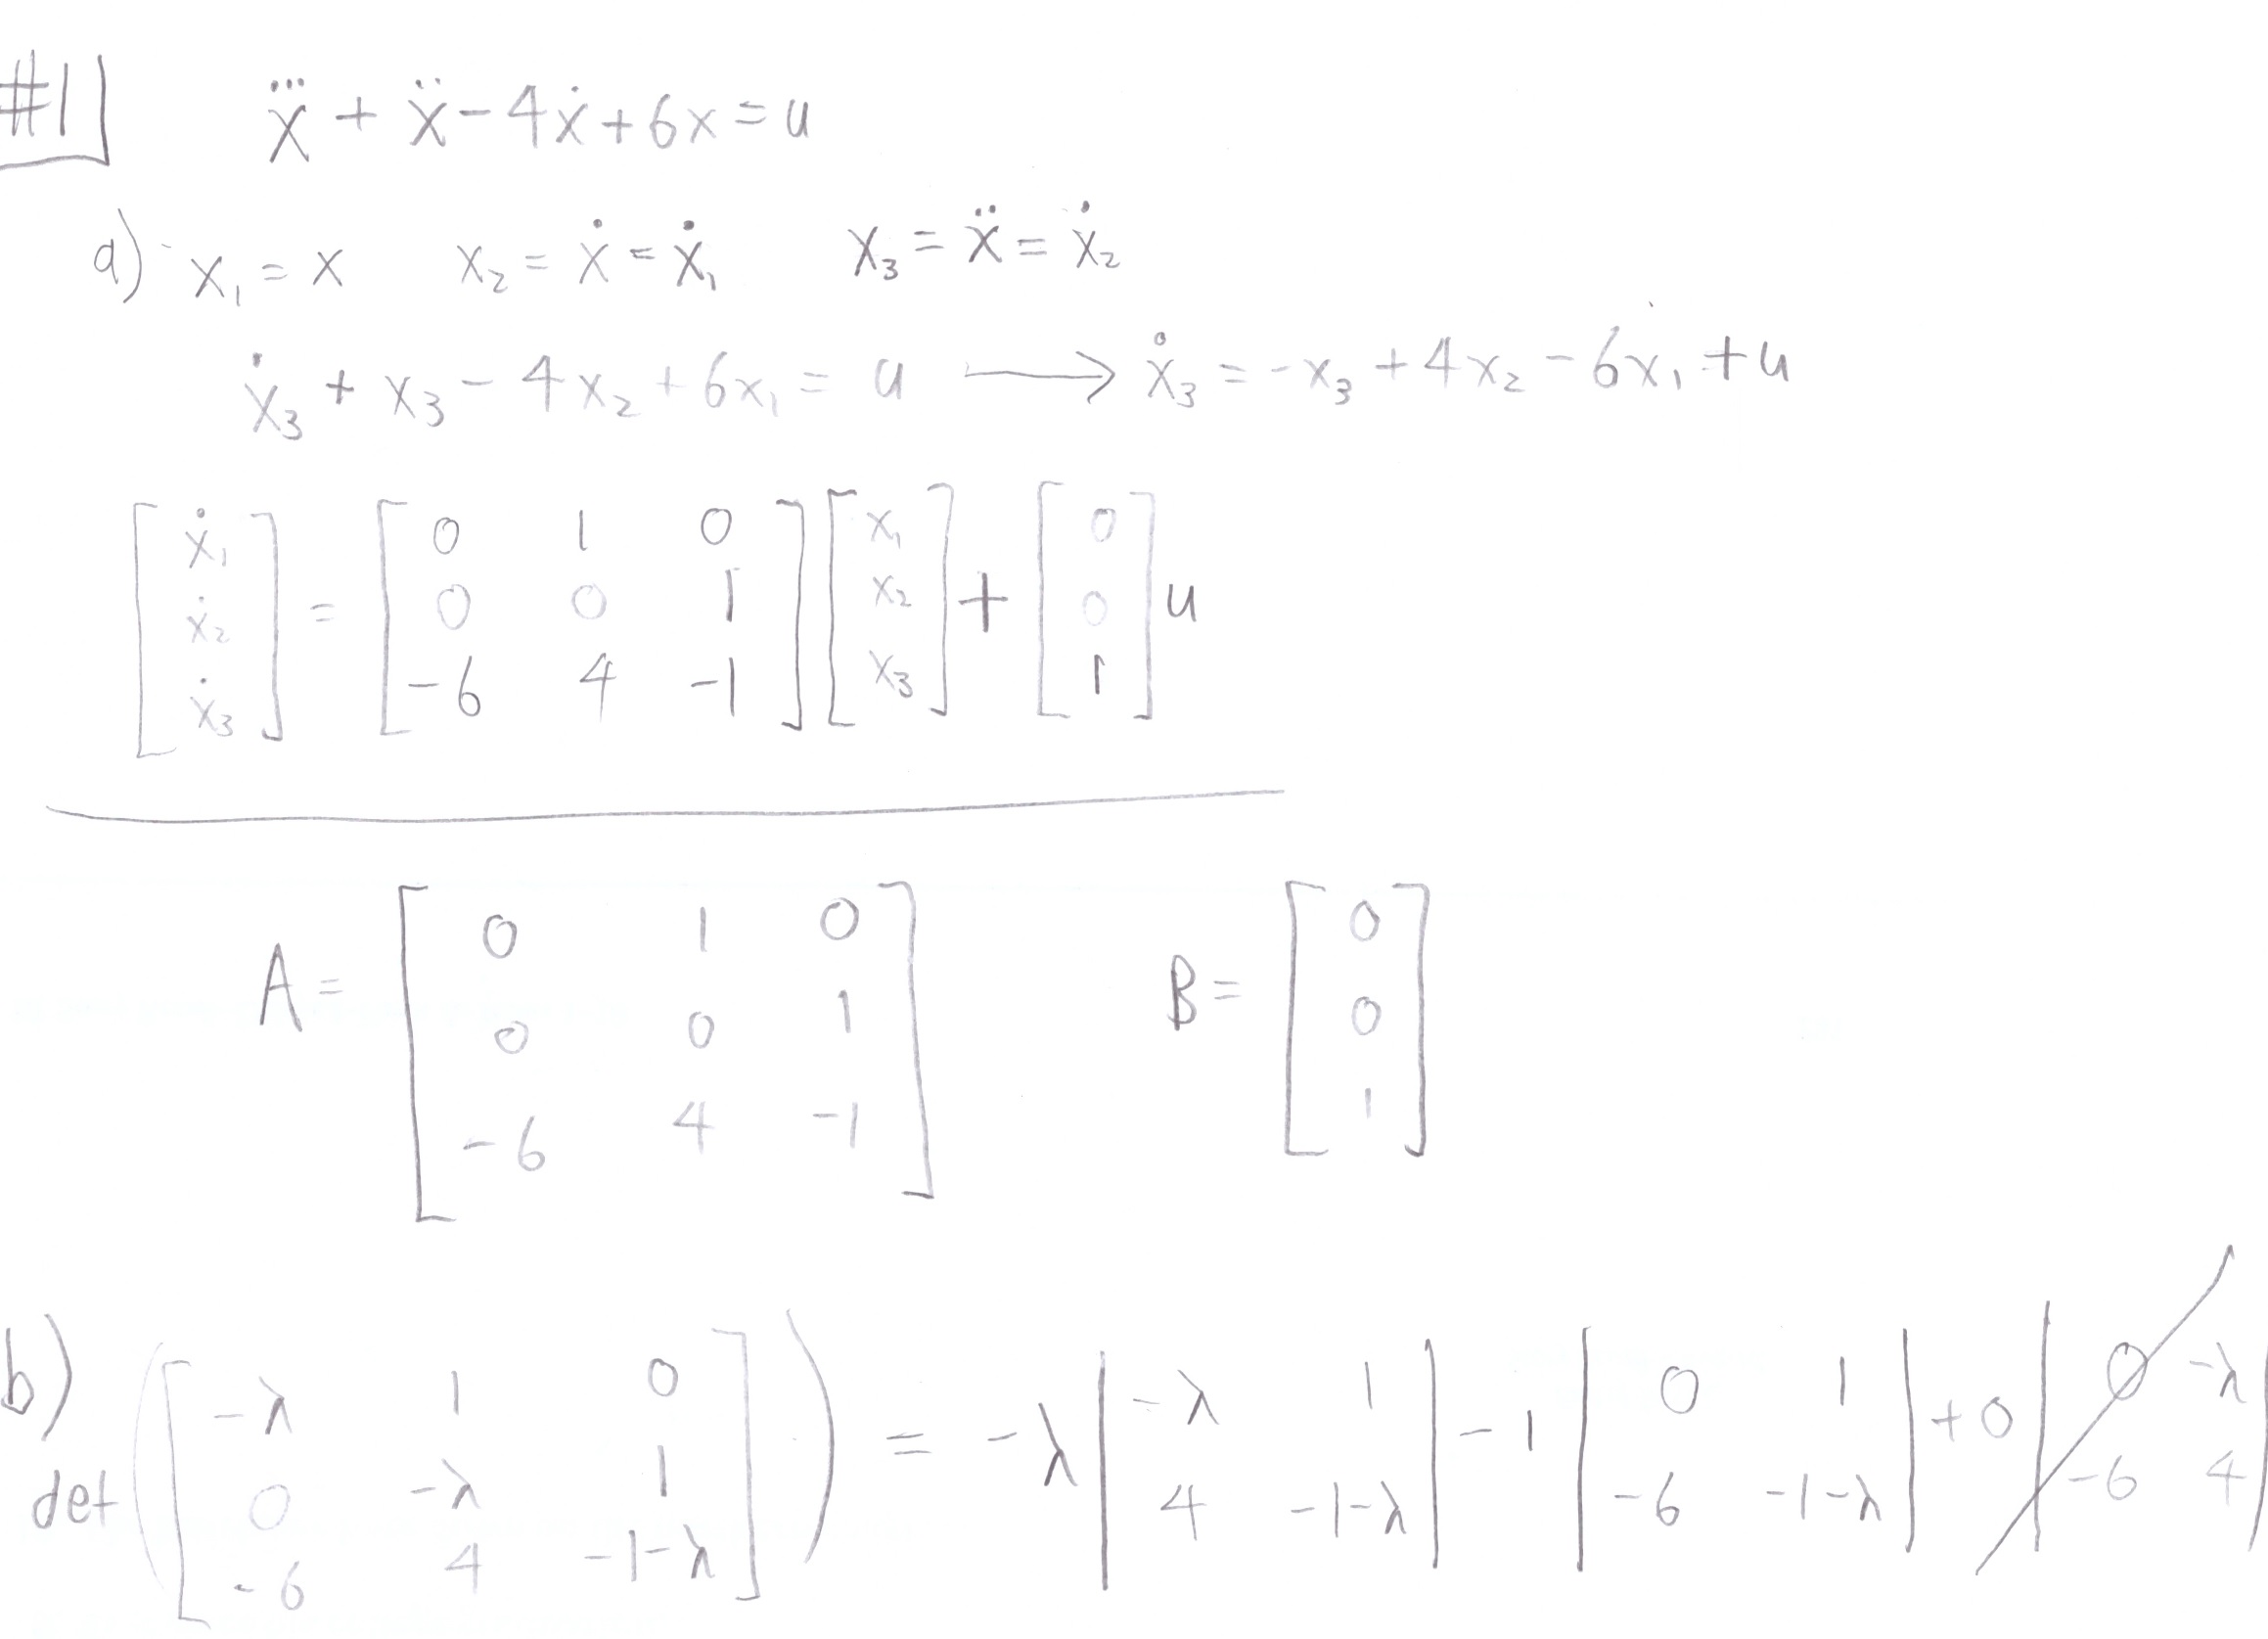 #1
x⃛ + ẍ - 4ẋ + 6x = u
a) x₁ = x   x₂ = ẋ = ẋ₁   x₃ = ẍ = ẋ₂
ẋ₃ + x₃ - 4x₂ + 6x₁ = u → ẋ₃ = -x₃ + 4x₂ - 6x₁ + u
[ẋ₁; ẋ₂; ẋ₃] = [0 1 0; 0 0 1; -6 4 -1] [x₁; x₂; x₃] + [0; 0; 1] u
A = [0 1 0; 0 0 1; -6 4 -1]   B = [0; 0; 1]
b)
det([-λ 1 0; 0 -λ 1; -6 4 -1-λ]) = -λ |-λ 1; 4 -1-λ| - 1 |0 1; -6 -1-λ| + 0 |0 -λ; -6 4|